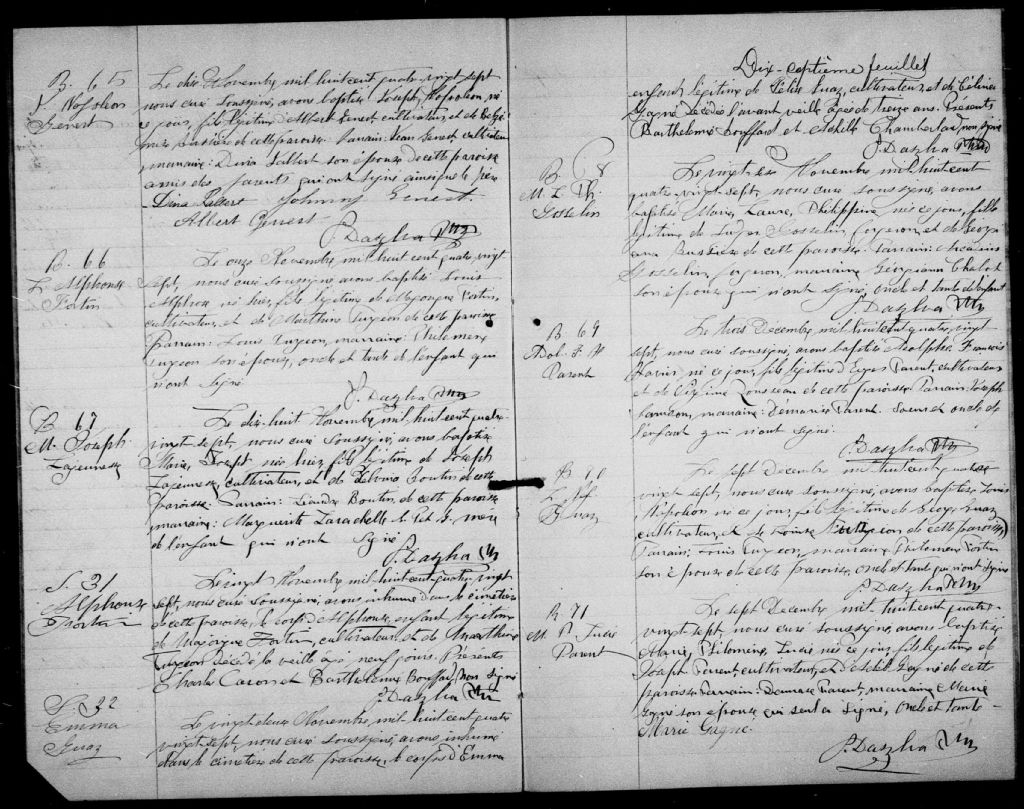 B. 65
Napoleon
Genest
Le dix Novembre mil huit cent quatre-vingt sept
nous curé soussigné, avons baptisé Joseph, Napoléon, né
ce jour, fils légitime d'Albert Genest cultivateur, et de
de cette paroisse. Parrain: Jean Genest, cultivateur
marraine: son épouse de cette paroisse
amis des parents qui ont signé ainsi que le père
Johnny Genest.
Albert Genest
P. Dassylva Ptre
B. 66
L. Alphonse
Fortin
Le onze Novembre mil huit cent quatre-vingt
sept, nous curé soussigné, avons baptisé Louis
Alphonse né hier, fils légitime de Majorique Fortin,
cultivateur, et de Marthine Turgeon de cette paroisse
Parrain: Louis Turgeon, marraine: Philomène
Turgeon son épouse, oncle et tante de l'enfant qui
n'ont signé
P. Dassylva Ptre
B 67
M. Joseph
Lajeunesse
Le dix-huit Novembre mil huit cent quatre-
vingt sept, nous curé soussigné, avons baptisé
Marie, Joseph né hier, fils légitime de Joseph
Lajeunesse, cultivateur, et de Boutin de cette
paroisse. Parrain: Léandre Boutin, de cette paroisse
marraine: Marguerite Larochelle la
de l'enfant qui n'ont signé
P. Dassylva Ptre
S. 31
Alphonse
Fortin
Le vingt Novembre mil huit cent quatre-vingt
sept, nous curé soussigné, avons inhumé dans le cimetière
de cette paroisse, le corps d'Alphonse, enfant légitime
de Majorique Fortin, cultivateur, et de Marthine
Turgeon décédé la veille âgé neuf jours. Présents
Charles Caron et Barthelemie Bouffard, non signé
P. Dassylva Ptre
S. 32
Emma
Le vingt deux Novembre mil huit cent quatre
vingt sept, nous curé soussigné, avons inhumé
dans le cimetière de cette paroisse, le corps d'Emma
Dix-septième feuillet
enfant légitime de Félix cultivateur, et de Célina
Gagné décédée l'avant veille âgée de treize ans. Présents
Barthelemie Bouffard et Achille Chamberland, non signé
P. Dassylva Ptre
B. 68
M. L. Ph.
Gosselin
Le vingt six Novembre mil huit cent
quatre-vingt sept, nous curé soussigné, avons
baptisé Marie, Laure, Philippine, née ce jour, fille
légitime de Gosselin, forgeron, et de
Bussière de cette paroisse. Parrain:
Gosselin, forgeron, marraine Georgiana Chabot
son épouse, qui n'ont signé, oncle et tante de l'enfant
P. Dassylva Ptre
B 69
Adol. F. X
Parent
Le trois Décembre, mil huit cent quatre-vingt
sept, nous curé soussigné, avons baptisé Adolphe, François
Xavier, né ce jour, fils légitime d' Parent, cultivateur
et de Rousseau de cette paroisse. Parrain: Joseph
marraine: Demarise Parent. Soeur et oncle de
l'enfant qui n'ont signé.
P. Dassylva Ptre
B 70
Le sept Decembre mil huit cent quatre
vingt sept, nous curé soussigné, avons baptisé Louis
Napoléon né ce jour, fils légitime de
cultivateur, et de Louise Turgeon de cette paroisse
Parrain: Louis Turgeon, marraine Philomène Fortin
son épouse de cette paroisse, oncle et tante qui n'ont signé
P. Dassylva Ptre
B. 71
M. P. Lucie
Parent
Le sept Decembre mil huit cent quatre-
vingt sept, nous curé soussigné, avons baptisé
Marie, Philomène, Lucie née ce jour, fille légitime de
Joseph Parent, cultivateur, et Gagné de cette
paroisse. Parrain: Parent, marraine Marie
Gagné son épouse, qui seul a signé, oncle et tante
Marie Gagné.
P. Dassylva Ptre